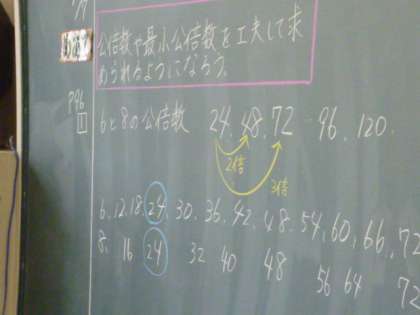 公倍数や最小公倍数を工夫して求
められるようになろう。
P96
1
6と8の公倍数 24、48、72 96、120.
2倍
3倍
6、12、18、24、30、36、42、48、54、60、66、72
8、16 24 32 40 48 56 64 72